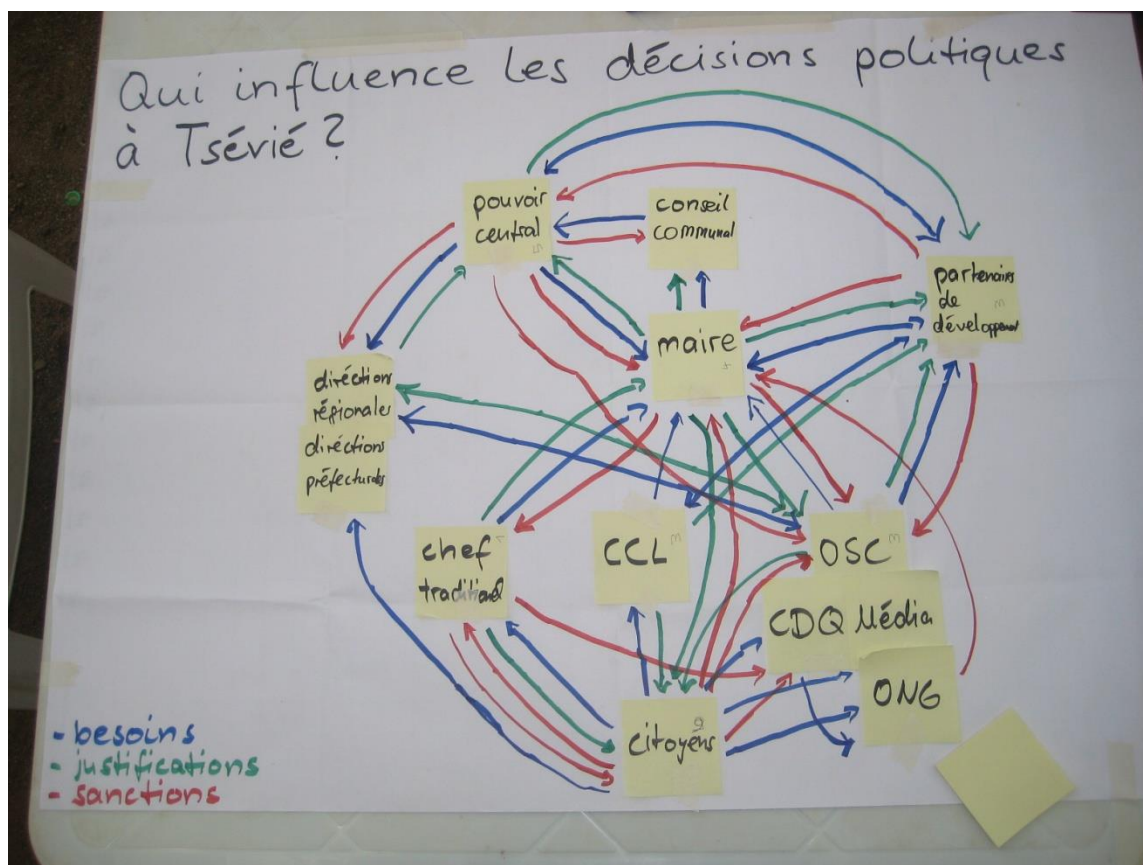 Qui influence les décisions politiques
à Tsévié ?
pouvoir
central
5
conseil
communal
partenaires
de
développement
3
maire
4
diréctions
régionales
diréctions
préfectorales
chef
traditionnel
1
CCL
3
OSC
3
CDQ Média
ONG
citoyens
0
- besoins
- justifications
- sanctions